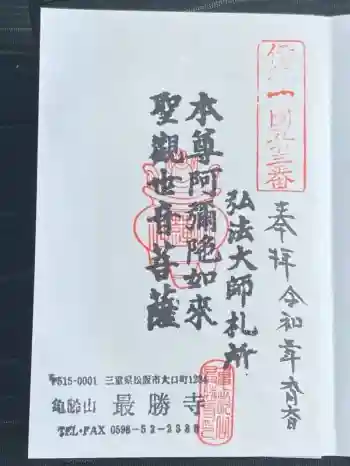 奉拝 令和 年 月 日
弘法大師札所
本尊阿彌陀如來
聖觀世音菩薩
〒515-0001 三重県松阪市大口町1234
亀齢山 最勝寺
TEL・FAX 0598-52-2388